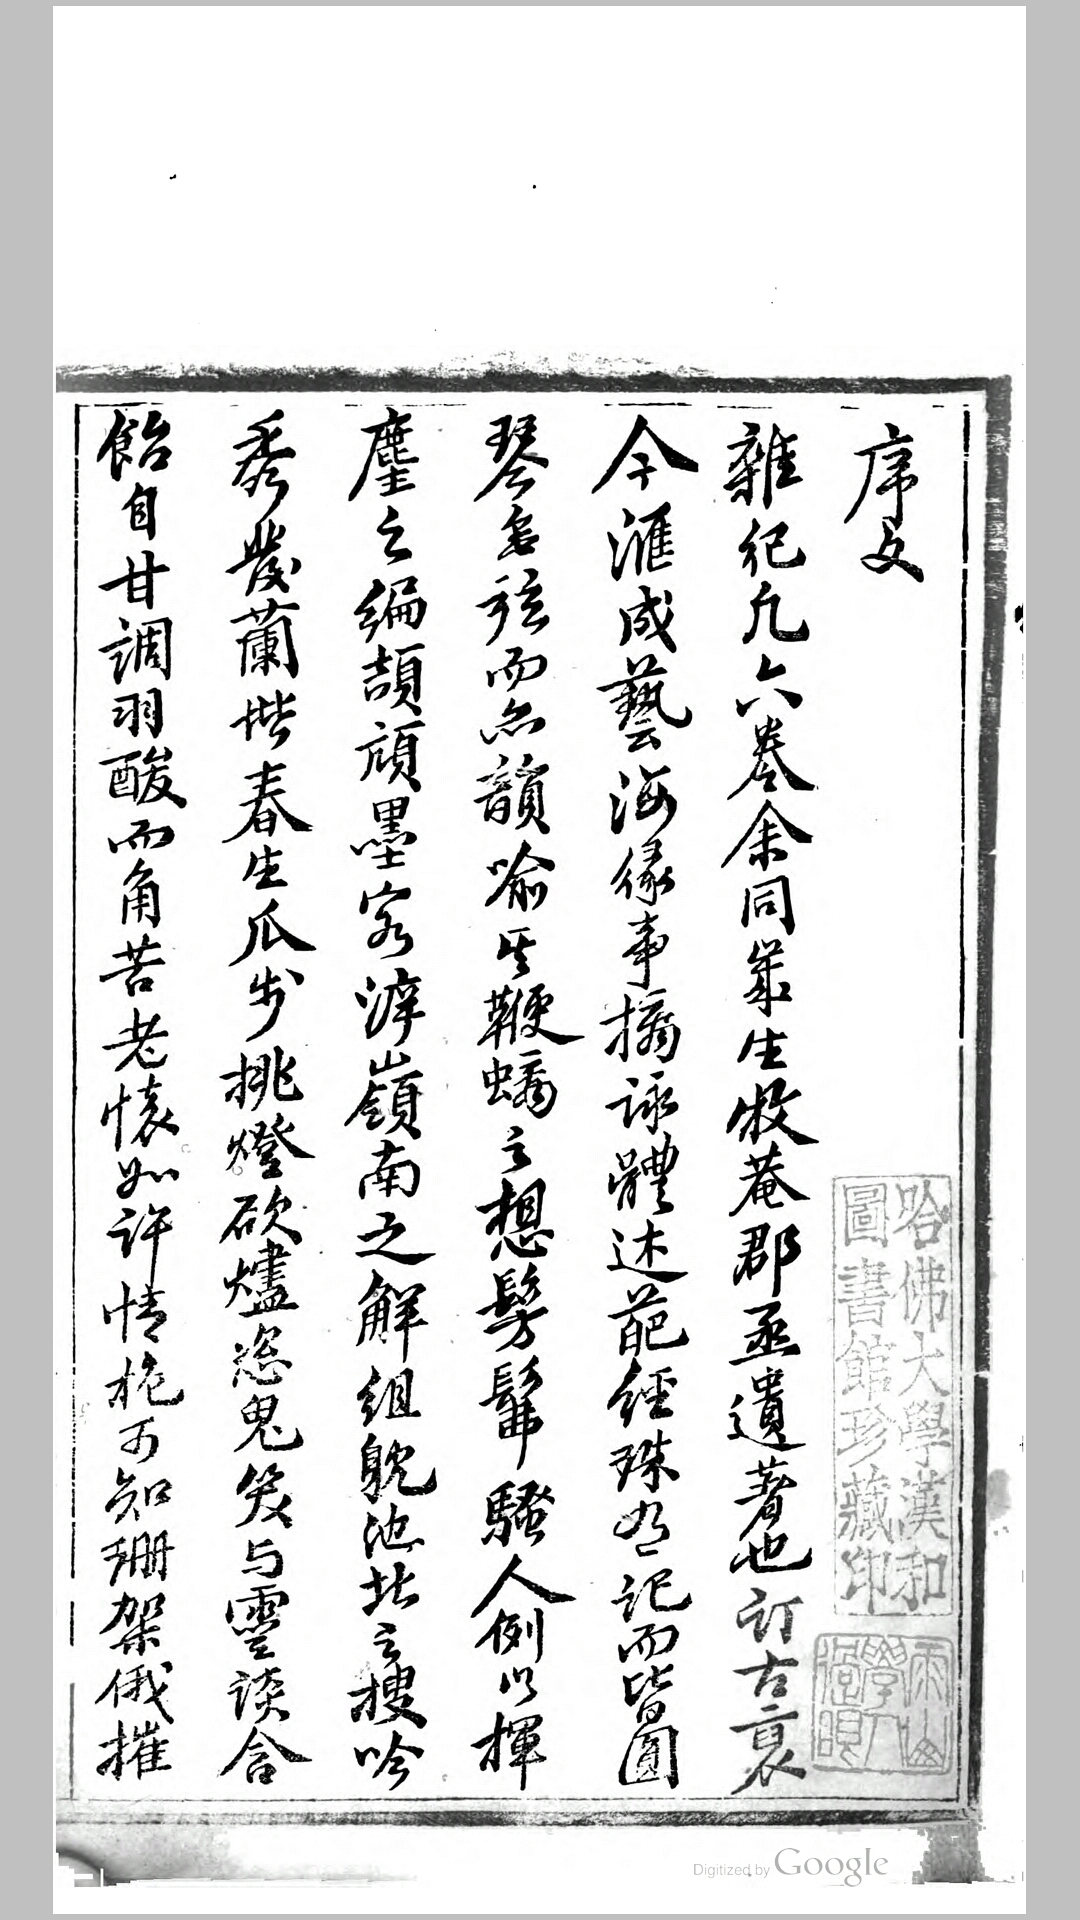 序文
雜紀凡六卷余同歲生牧菴郡丞遺著也訂古裒
今滙成藝海緣事摛詠體述葩經珠有記而皆圓
琴名弦而亦韻喻其鞭蟎之想髣髴騷人例以揮
麈之編頡頏墨客滓嶺南之解組貌池北之搜吟
秀發蘭堦春生瓜步挑燈砍燼恣鬼笑與靈談含
飴自甘調羽酸而角苦老懷如許情枕可知珊架俄摧
哈佛大學漢和
圖書館珍藏印
Digitized by Google